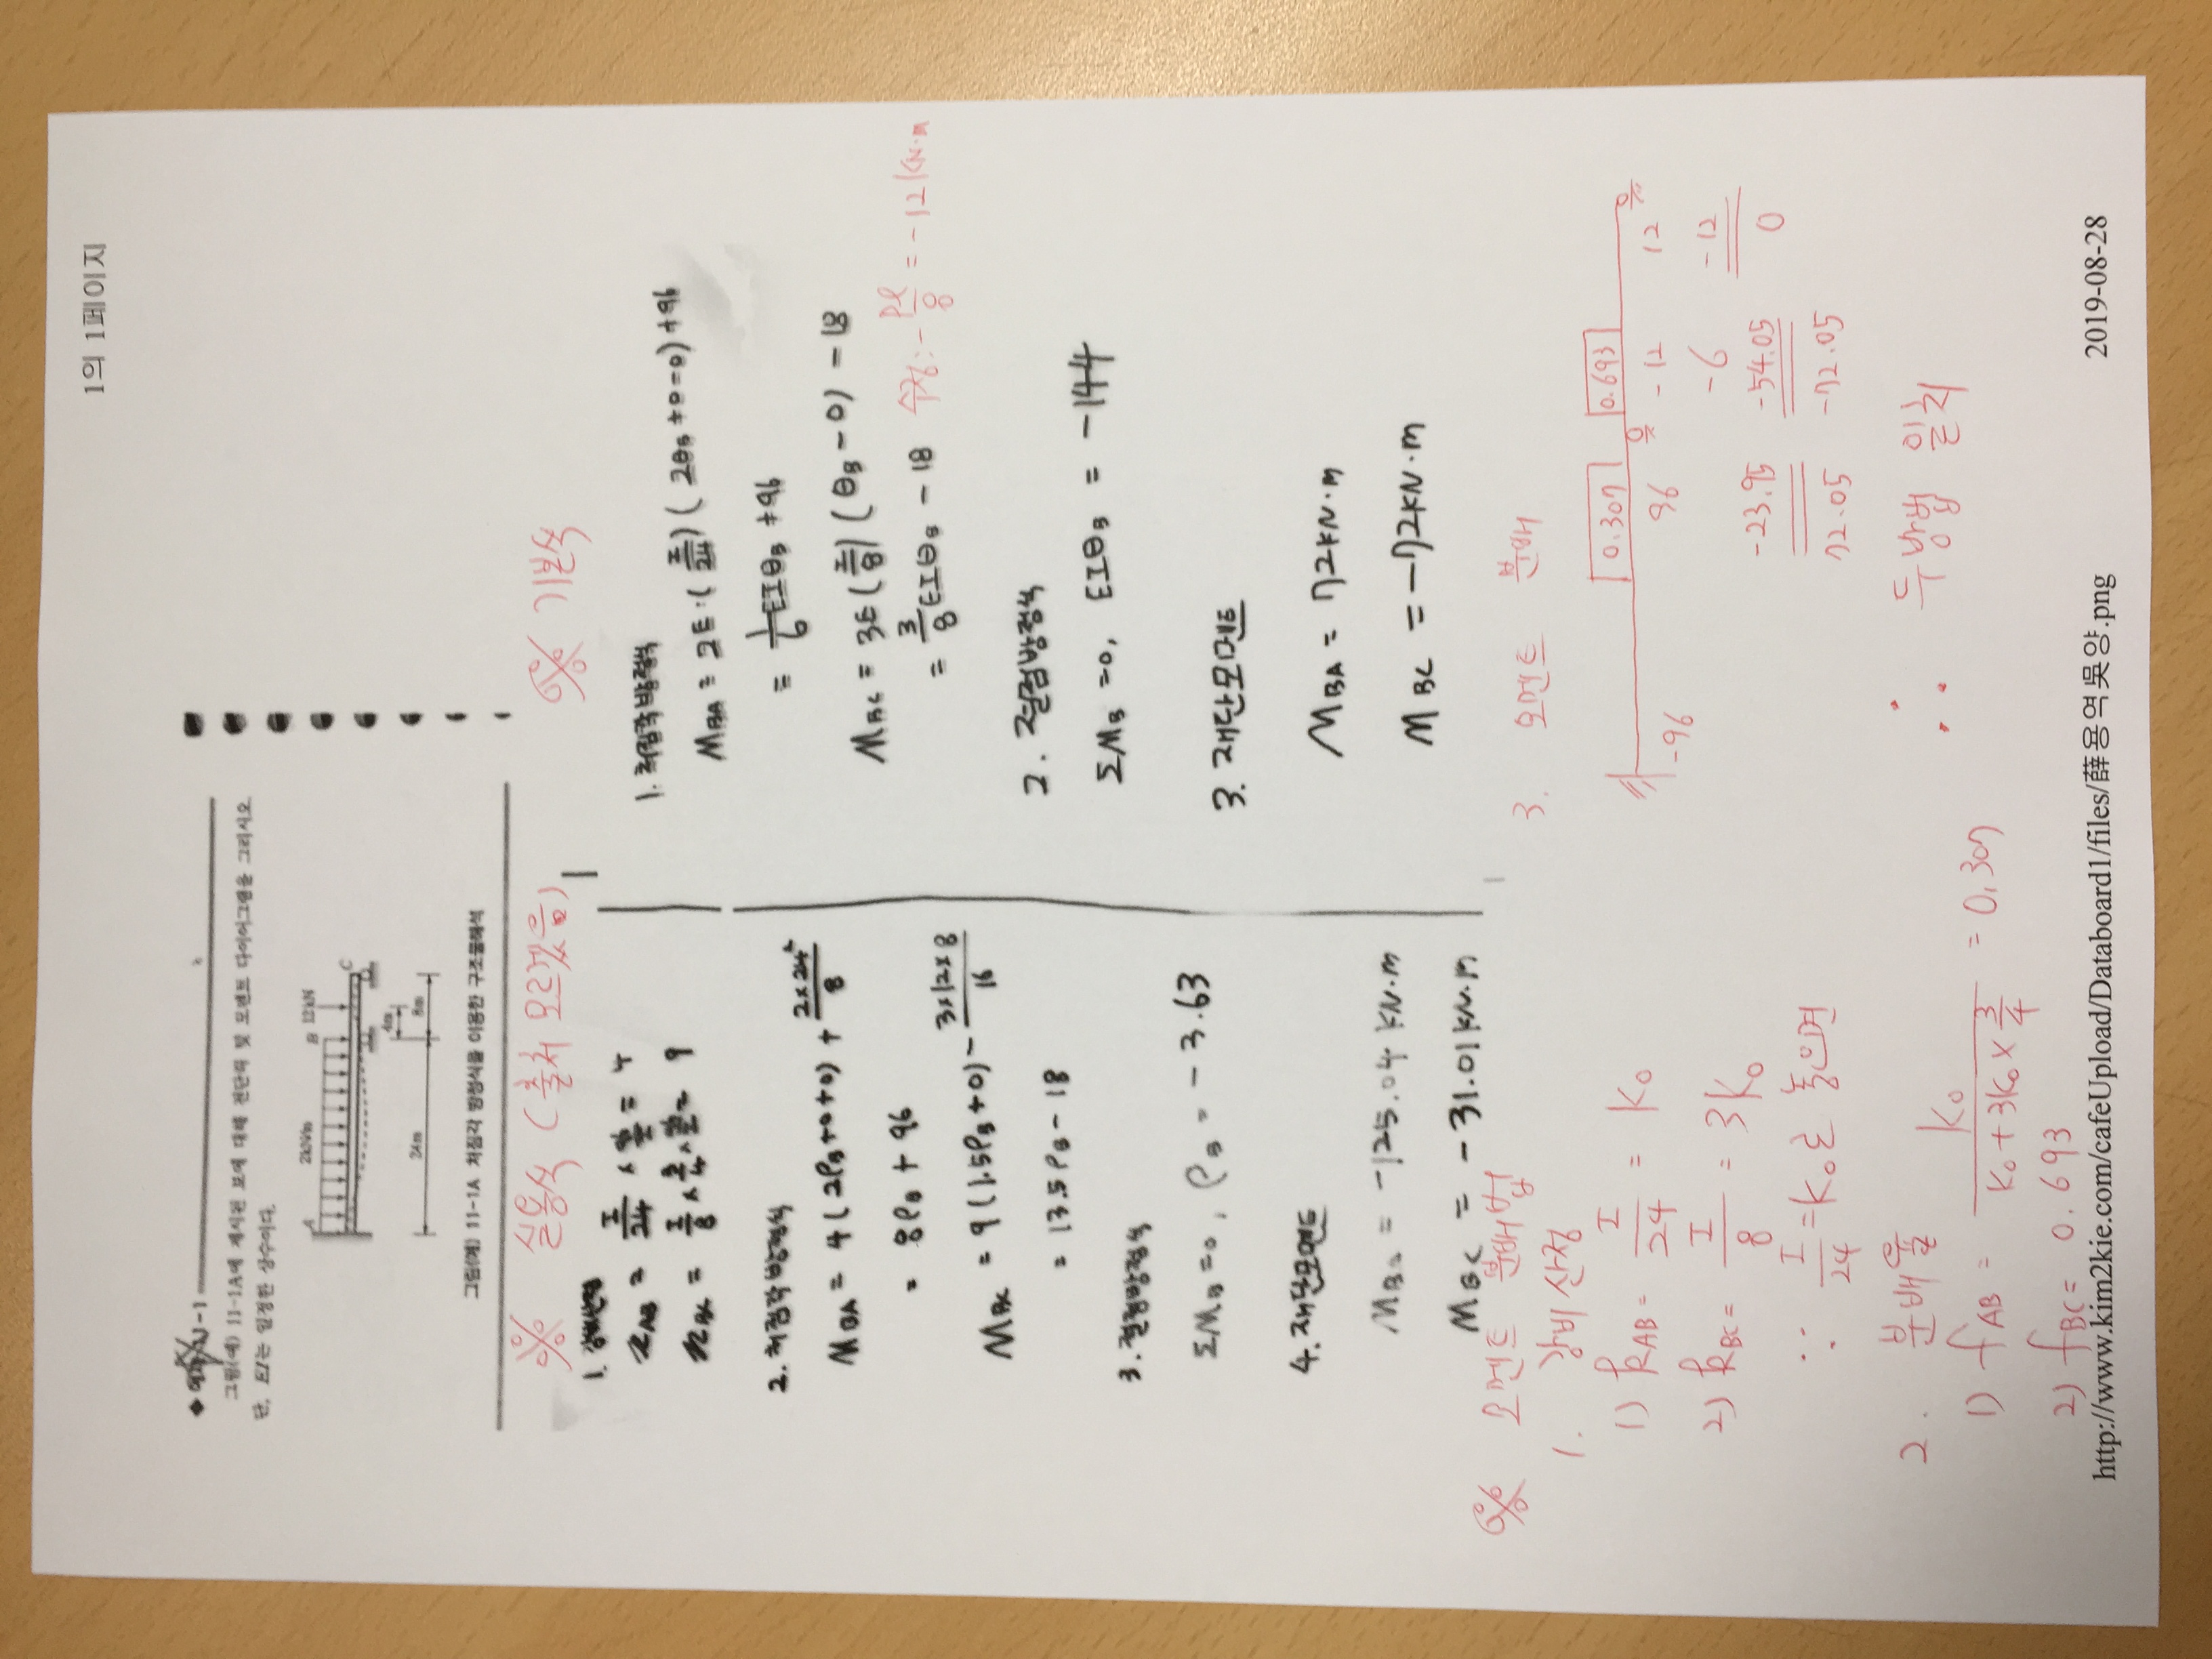 1의 1페이지
◆ 예제 11-1
그림(예) 11-1A에 제시된 보에 대해 전단력 및 모멘트 다이어그램을 그리시오
단, EI는 일정한 상수이다.
2kN/m
B 12kN
A
C
4m
24m
8m
그림(예) 11-1A 처짐각 방정식을 이용한 구조물해석
※ 실용식 (출처 모르겠음)
1. 강비산정
K_AB = I/24 × = 4
K_BC = I/8 × 3/4 × = 9
2. 처짐각방정식
M_BA = 4(2φ_B+0+0) + 2×24²/8
= 8φ_B + 96
M_BC = 9(1.5φ_B+0) - 3×12×8/16
= 13.5φ_B - 18
3. 절점방정식
ΣM_B=0, φ_B = -3.63
4. 재단모멘트
M_BA = -125.04 kN·m
M_BC = -31.01 kN·m
※ 기본식
1. 처짐각방정식
M_BA = 2E·(I/24)(2θ_B+0-0)+96
= 1/6EIθ_B+96
M_BC = 3E(I/8)(θ_B-0)-18
= 3/8EIθ_B - 18 수정: -Pl/8 = -12kN·m
2. 절점방정식
ΣM_B=0, EIθ_B = -144
3. 재단모멘트
M_BA = 72kN·m
M_BC = -72kN·m
※ 모멘트 분배법
1. 강비산정
1) k_AB = I/24 = K₀
2) k_BC = I/8 = 3K₀
∴ I/24 = K₀로 놓으면
2. 분배율
1) f_AB = K₀/(K₀+3K₀×3/4) = 0.307
2) f_BC = 0.693
3. 모멘트 분배
0.307 0.693
-96 96 -12 12
-6 -12
-23.95 -54.05 0
72.05 -72.05
∴ 두방법 일치
http://www.kim2kie.com/cafeUpload/Databoard1/files/薛용역吳양.png 2019-08-28